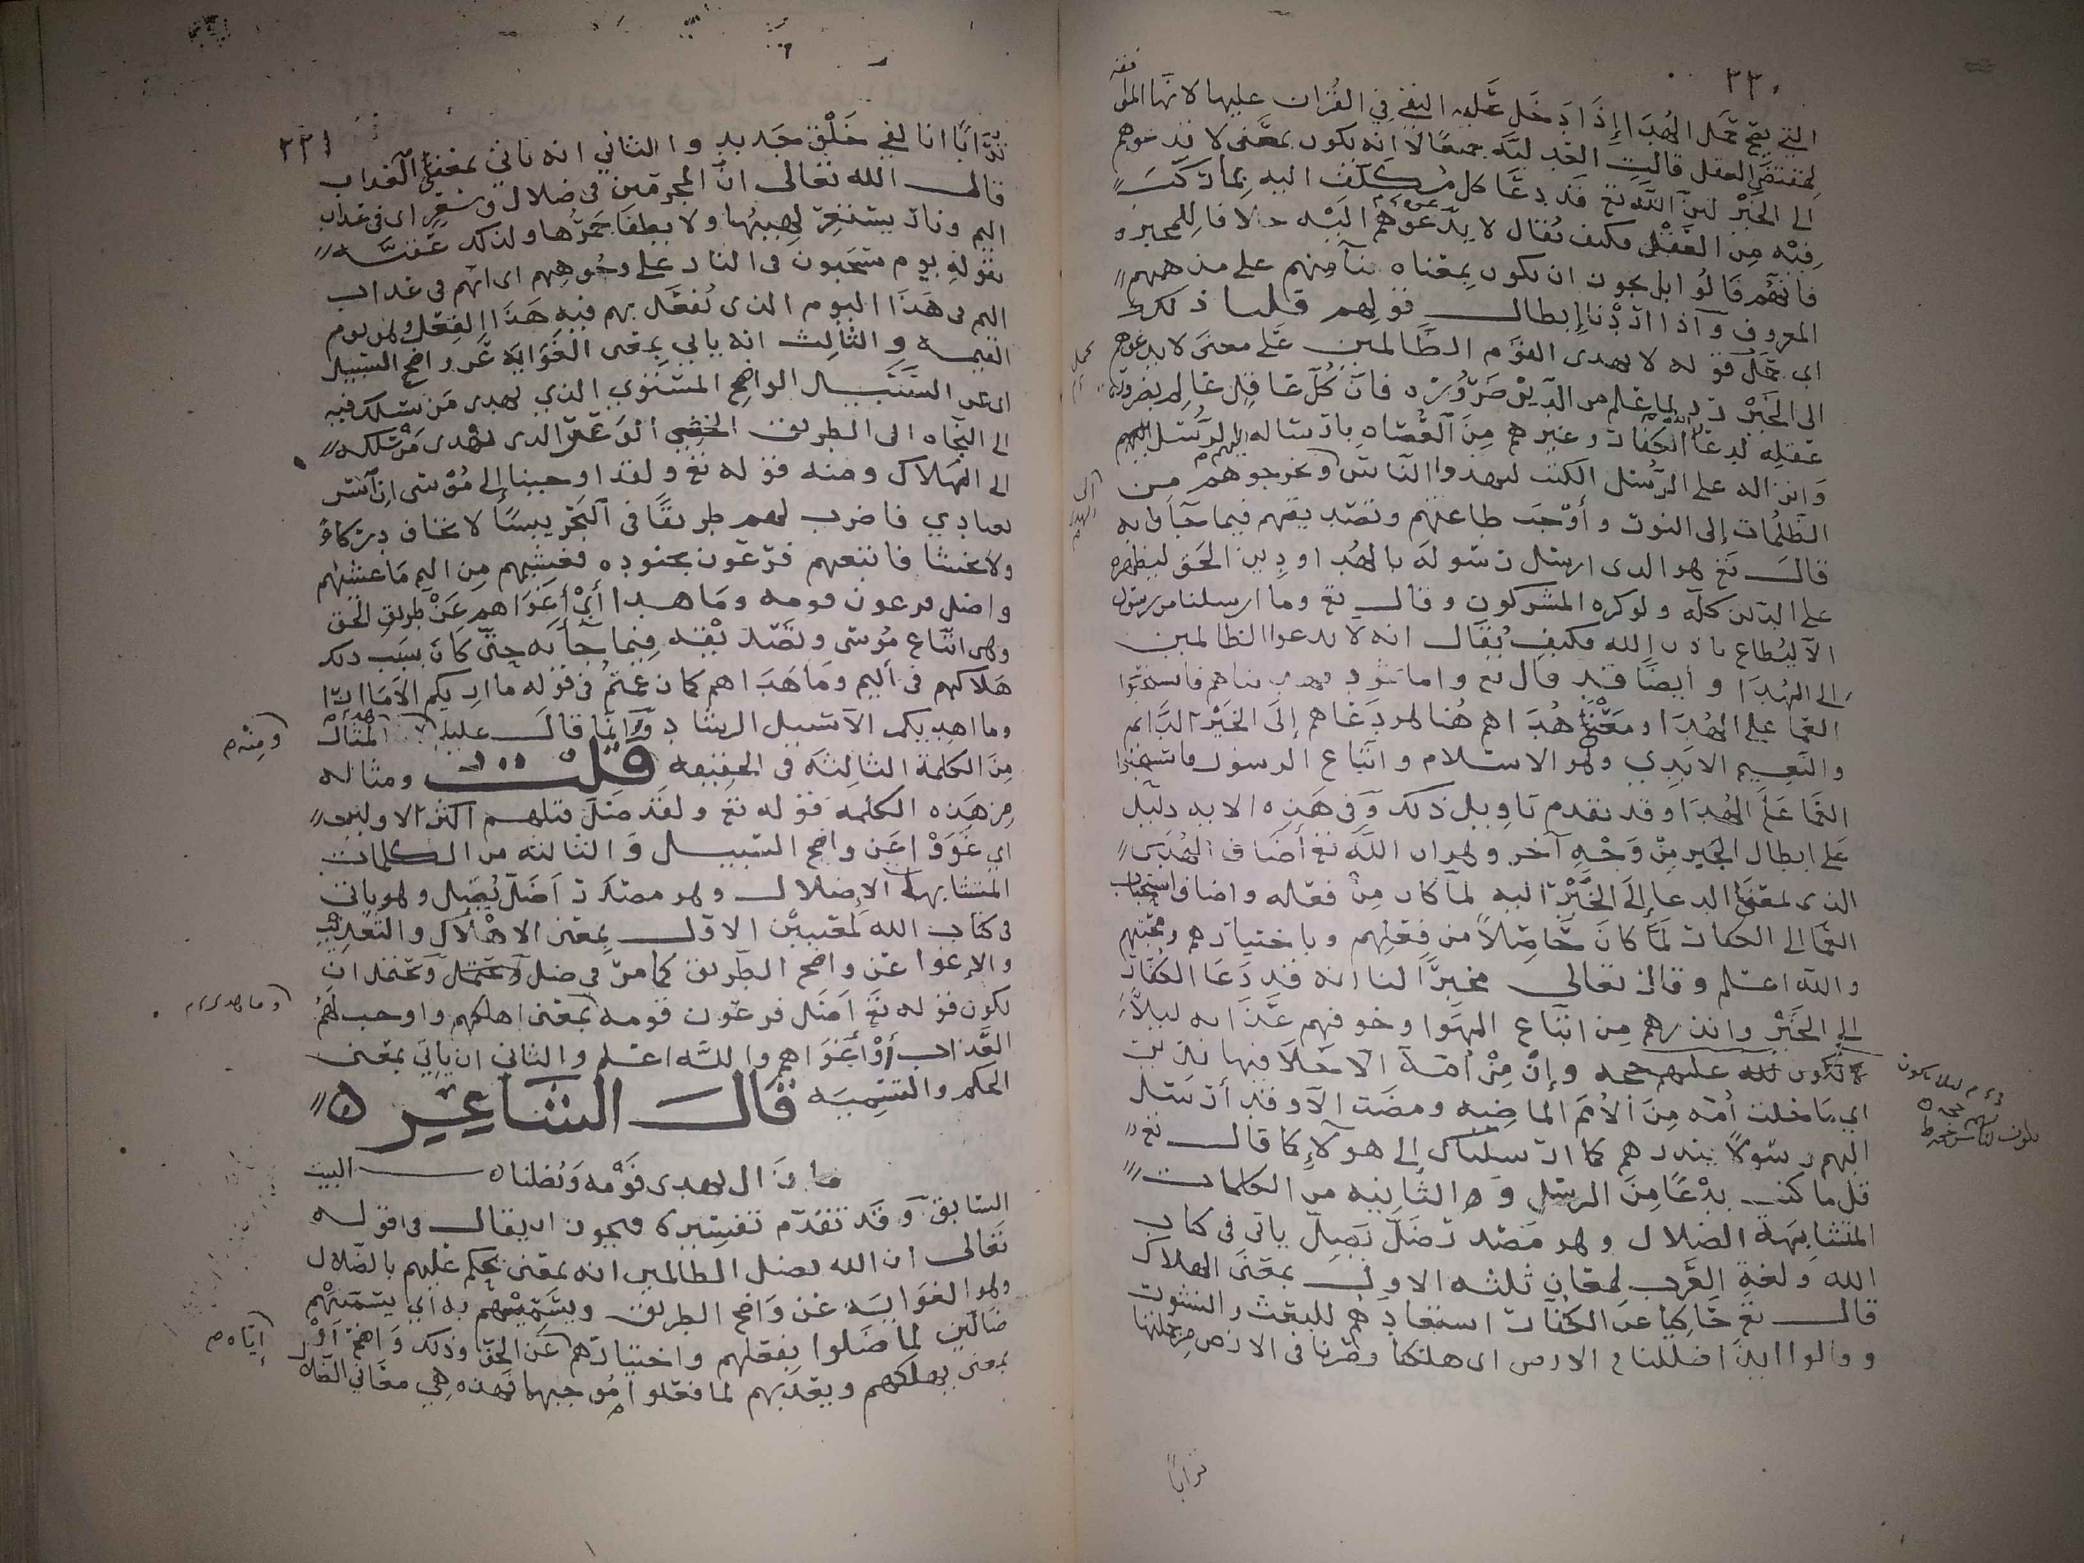 ٢٢٠
التي يصح حمل الهدا إذا دخل عليه النفي في القران عليها لانها الموا
فقه
لمقتضى العقل قالت العدليه جميعًا لا انه يكون بمعنى لا يدعوهم
الى الخير لان الله تع قد دعا كل مكلف اليه بما ركب
فيه من العقل فكيف يقال لا يدعوهم اليه خلافا للمجبره
فانهم قالوا بل يجوز ان يكون بمعناه بنآ منهم على مذهبهم
المعروف وآذا اردنا إبطال قولهم قلنا ذلك
اي حمل قوله لا يهدى القوم الظالمين على معنى لا يدعوهم
الى الخير رد لما علم من الدين ضرورة فان كل عاقل عالم بضرورة
عقله لدعا الله الكفار وغيرهم من العصاه بارساله اليهم الرسل
وانزاله على الرسل الكتب ليهدوا الناس ويخرجوهم من
الظلمات إلى النور وأوجب طاعتهم وتصديقهم فيما جآوا به
قال تع هو الدى ارسل رسوله بالهدا ودين الحق ليظهره
على الدين كله ولو كره المشركون وقال تع وما ارسلنا من رسول
الا ليطاع باذن الله فكيف يقال انه لا يدعوا الظالمين
إلى الهدا وأيضًا فقد قال تع واما ثمود فهديناهم فاستحبوا
العما على الهدا ومعنى هدا هم هنا هو دعاهم إلى الخير الدايم
والنعيم الابدي وهو الاسلام واتباع الرسول فاستحبوا
العما على الهدا وقد تقدم تاويل ذلك وفي هذه الايه دليل
على ابطال الجبر من وجه آخر وهو ان الله تع أضاف الهدى
الذى بمعنى الدعا إلى الخير اليه لما كان من فعله واضاف استحباب
العما الى الكفار لما كان حاصلًا من فعلهم وباختيارهم ومحبتهم
والله اعلم وقال تعالى مخبرًا لنا انه قد دعا الكفار
إلى الخير وانذرهم من اتباع الهوا وخوفهم عذابه ليلا
تكون لله عليهم حجه وإن من أمة الا خلا فيها نذير
اي ما خلت أمه من الأمم الماضيه ومضت الا وقد أرسل
اليهم رسولًا ينذرهم كما ارسلناك إلى هولآء كما قال تع
قل ما كنت بدعًا من الرسل وه الثانيه من الكلمات
المتشابهة الضلال وهو مصدر ضل يضل ياتى في كتاب
الله ولغة العرب لمعان ثلثه الاول بمعنى الهلاك
قال تع حاكيا عن الكفار استبعادهم للبعث والنشور
وقالوا ايذا ضللنا في الارض اى هلكنا وصرنا في الارض من خلقها
ترابًا
٢٢١
ترابًا انا لفي خلق جديد والثاني انه ياتي بمعنى العذاب
قال الله تعالى ان المجرمين في ضلال وسعر اى في عذاب
اليم ونار يستعر لهيبها ولا يطفا جمرها ولذلك عقبه
بقوله يوم يسحبون في النار على وجوههم اى انهم في عذاب
اليم في هذا اليوم الذى يفعل بهم فيه هذا الفعل وهو يوم
القيمه والثالث انه ياتي بمعنى الغوايه عن واضح السبيل
اى عن السبيل الواضح المستوي الذي يهدى من سلك فيه
إلى النجاه الى الطريق الخفي الوعر الدى يهدى من سلكه
إلى الهلاك ومنه قوله تع ولقد اوحينا إلى موسى ان أسر
بعبادي فاضرب لهم طريقًا في البحر يبسًا لا تخاف دركًا
ولا تخشا فاتبعهم فرعون بجنوده فغشيهم من اليم ما غشيهم
واضل فرعون قومه وما هدا أي أغواهم عن طريق الحق
وهى اتباع موسى وتصديقه فيما جآ به حتى كان بسبب ذلك
هلاكهم في أليم وما هدا هم كما زعم في قوله ما اريكم الا ما ارا
وما اهديكم الا سبيل الرشاد وانما قال عليلم هذا المثال
من الكلمة الثالثه في الحقيقه قلت ومثاله
ومنه م
من هذه الكلمه قوله تع ولقد ضل قبلهم اكثر الاولين
اي غووا عن واضح السبيل والثالثه من الكلمات
المتشابهة الإضلال وهو مصدر أضل يضل وهو ياتي
في كتاب الله لمعنيين الاول بمعنى الاهلاك والتعذيب
والإغوا عن واضح الطريق كما مر في ضل ويحتمل ان
يكون قوله تع اضل فرعون قومه بمعنى اهلكهم واوجب لهم
وما هدى م
العذاب أو أغواهم والله اعلم والثاني ان ياتي بمعنى
الحكم والتسميه قال الشاعر ه
ما زال يهدى قومه ويضلنا ه البيت
السابق وقد تقدم تفسيره فيجوز ان يقال في قوله
تعالى ان الله يضل الظالمين انه بمعنى يحكم عليهم بالضلال
وهو الغوايه عن واضح الطريق ويسميهم به اي يسميهم
ضالين لما ضلوا بفعلهم واختيارهم عن الحق وذلك واضح أو
إياه م
بمعنى يهلكهم ويعذبهم لما فعلوا موجبها فهذه هي معاني الضلال